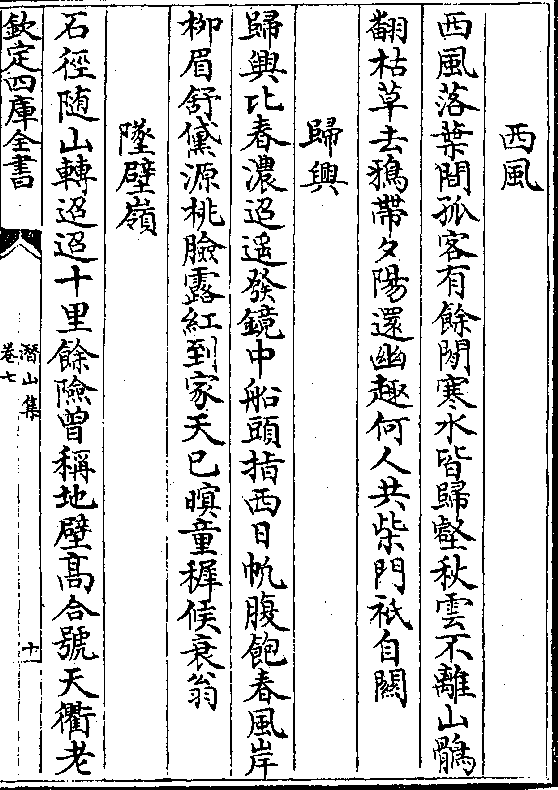 西風
西風落葉閒孤客有餘閒寒水皆歸壑秋雲不離山鶻
翻枯草去鴉帶夕陽還幽趣何人共柴門祇自關
歸興
歸興比春濃迢遥發鏡中船頭指西日帆腹飽春風岸
柳眉舒黛源桃臉露紅到家天已暝童穉候衰翁
墜壁嶺
石徑随山轉迢迢十里餘險曾稱地壁髙合號天衢老
欽定四庫全書
潛山集
卷七
十一